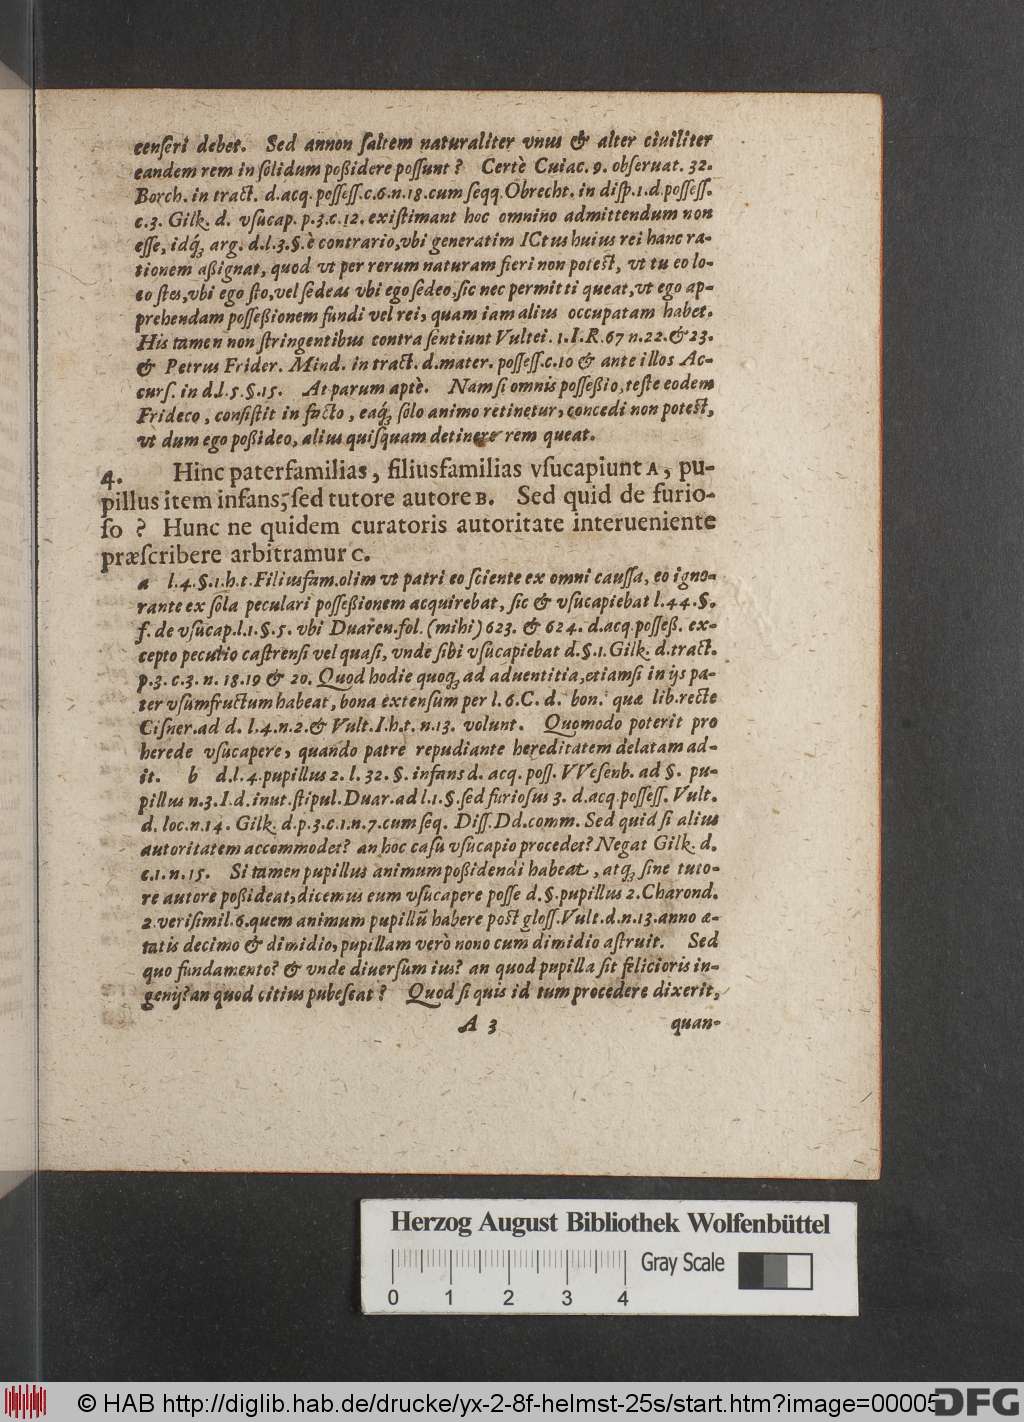 censeri debet. Sed annon saltem naturaliter vnus & alter ciuiliter
eandem rem in solidum poßidere possunt? Certè Cuiac. 9. obseruat. 32.
Borch. in tract. d.acq. possess.c.6.n.18.cum seqq. Obrecht. in disp.1.d.possess.
c.3. Gilk. d. vsucap. p.3.c.12. existimant hoc omnino admittendum non
esse, idq́ꝫ arg. d.l.3.§.è contrario,vbi generatim ICtus huius rei hanc ra-
tionem aßignat, quod vt per rerum naturam fieri non potest, vt tu eo lo-
co stes,vbi ego sto,vel sedeas vbi ego sedeo,sic nec permitti queat,vt ego ap-
prehendam posseßionem fundi vel rei, quam iam alius occupatam habet.
His tamen non stringentibus contra sentiunt Vultei. 1.I.R.67 n.22.& 23.
& Petrus Frider. Mind. in tract. d.mater. possess.c.10 & ante illos Ac-
curs. in d.l.5.§.15. At parum aptè. Nam si omnis posseßio,teste eodem
Frideco, consistit in facto, eaq́ꝫ solo animo retinetur, concedi non potest,
vt dum ego poßideo, alius quisquam detinere rem queat.
4. Hinc paterfamilias, filiusfamilias vsucapiunt A, pu-
pillus item infans; sed tutore autore B. Sed quid de furio-
so? Hunc ne quidem curatoris autoritate interueniente
præscribere arbitramur C.
a l.4.§.1.h.t. Filiusfam.olim vt patri eo sciente ex omni caussa, eo igno-
rante ex sola peculari posseßionem acquirebat, sic & vsucapiebat l.44.§.
f. de vsucap.l.1.§.5. vbi Duaren.fol. (mihi) 623. & 624. d.acq.posseß. ex-
cepto peculio castrensi vel quasi, vnde sibi vsucapiebat d.§.1. Gilk. d.tract.
p.3. c.3. n. 18.19 & 20. Quod hodie quoqꝫ ad aduentitia,etiamsi in ijs pa-
ter vsumfructum habeat, bona extensum per l.6.C. d. bon. quæ lib.recte
Cisner.ad d. l.4.n.2.& Vult.I.h.t. n.13. volunt. Quomodo poterit pro
herede vsucapere, quando patre repudiante hereditatem delatam ad-
it. b d.l.4.pupillus 2. l. 32. §. infans d. acq. poss. VVesenb. ad §. pu-
pillus n.3.I.d.inut.stipul.Duar.ad l.1.§.sed furiosus 3. d.acq.possess. Vult.
d. loc.n.14. Gilk. d.p.3.c.1.n.7.cum seq. Diss. Dd.comm. Sed quid si alius
autoritatem accommodet? an hoc casu vsucapio procedet? Negat Gilk. d.
c.1.n.15. Si tamen pupillus animum poßidendi habeat, atqꝫ sine tuto-
re autore poßideat,dicemus eum vsucapere posse d.§.pupillus 2.Charond.
2.verisimil.6.quem animum pupillū habere post gloss.Vult.d.n.13.anno æ-
tatis decimo & dimidio, pupillam verò nono cum dimidio astruit. Sed
quo fundamento? & vnde diuersum ius? an quod pupilla sit felicioris in-
genij? an quod citius pubescat? Quod si quis id tum procedere dixerit,
A 3 quan-
Herzog August Bibliothek Wolfenbüttel
0 1 2 3 4 Gray Scale
© HAB http://diglib.hab.de/drucke/yx-2-8f-helmst-25s/start.htm?image=00005
DFG